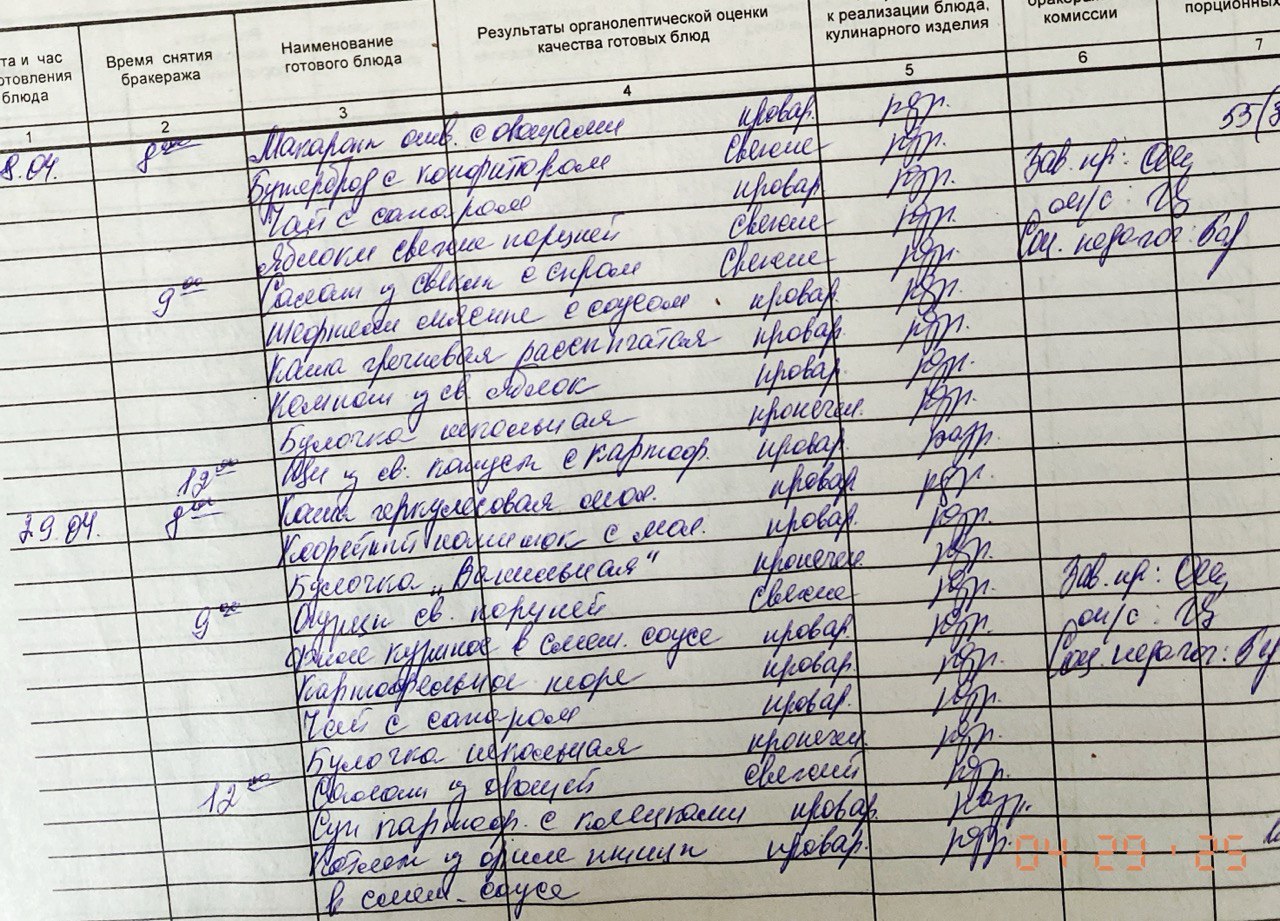 та и час
отовления
блюда
Время снятия
бракеража
Наименование
готового блюда
Результаты органолептической оценки
качества готовых блюд
к реализации блюда,
кулинарного изделия
комиссии
порционных
1 2 3 4 5 6 7
8.04. 8 00 Макароны отв. с овощами провар. рзр. 55(3
Бутерброд с конфитюром свежие рзр. Зав. пр:
Чай с сахаром провар рзр. м/с:
Яблоки свежие порцией свежие рзр. Соц. педагог:
9 00 Салат из свеклы с сыром свежие рзр.
с соусом провар. рзр.
Каша гречневая рассыпчатая провар. рзр.
Компот из св. яблок провар. рзр.
Булочка школьная пропечен. рзр.
12 00 Щи из св. капусты с картоф. провар. разр.
29.04. 8 00 Каша геркулесовая мол. провар рзр.
Кофейный напиток с мол. провар. рзр.
Булочка „Ванильная" пропечен. рзр.
9 00 Огурцы св. порцией свежие рзр. Зав. пр:
Филе куриное в смет. соусе провар. рзр. м/с:
Картофельное пюре провар. рзр. Соц. педагог:
Чай с сахаром провар. рзр.
Булочка школьная пропечен. рзр.
12 00 Салат из овощей свежий рзр.
Суп картоф. с клецками провар. разр.
из филе птицы провар. рзр.
в смет. соусе
04 29 '25